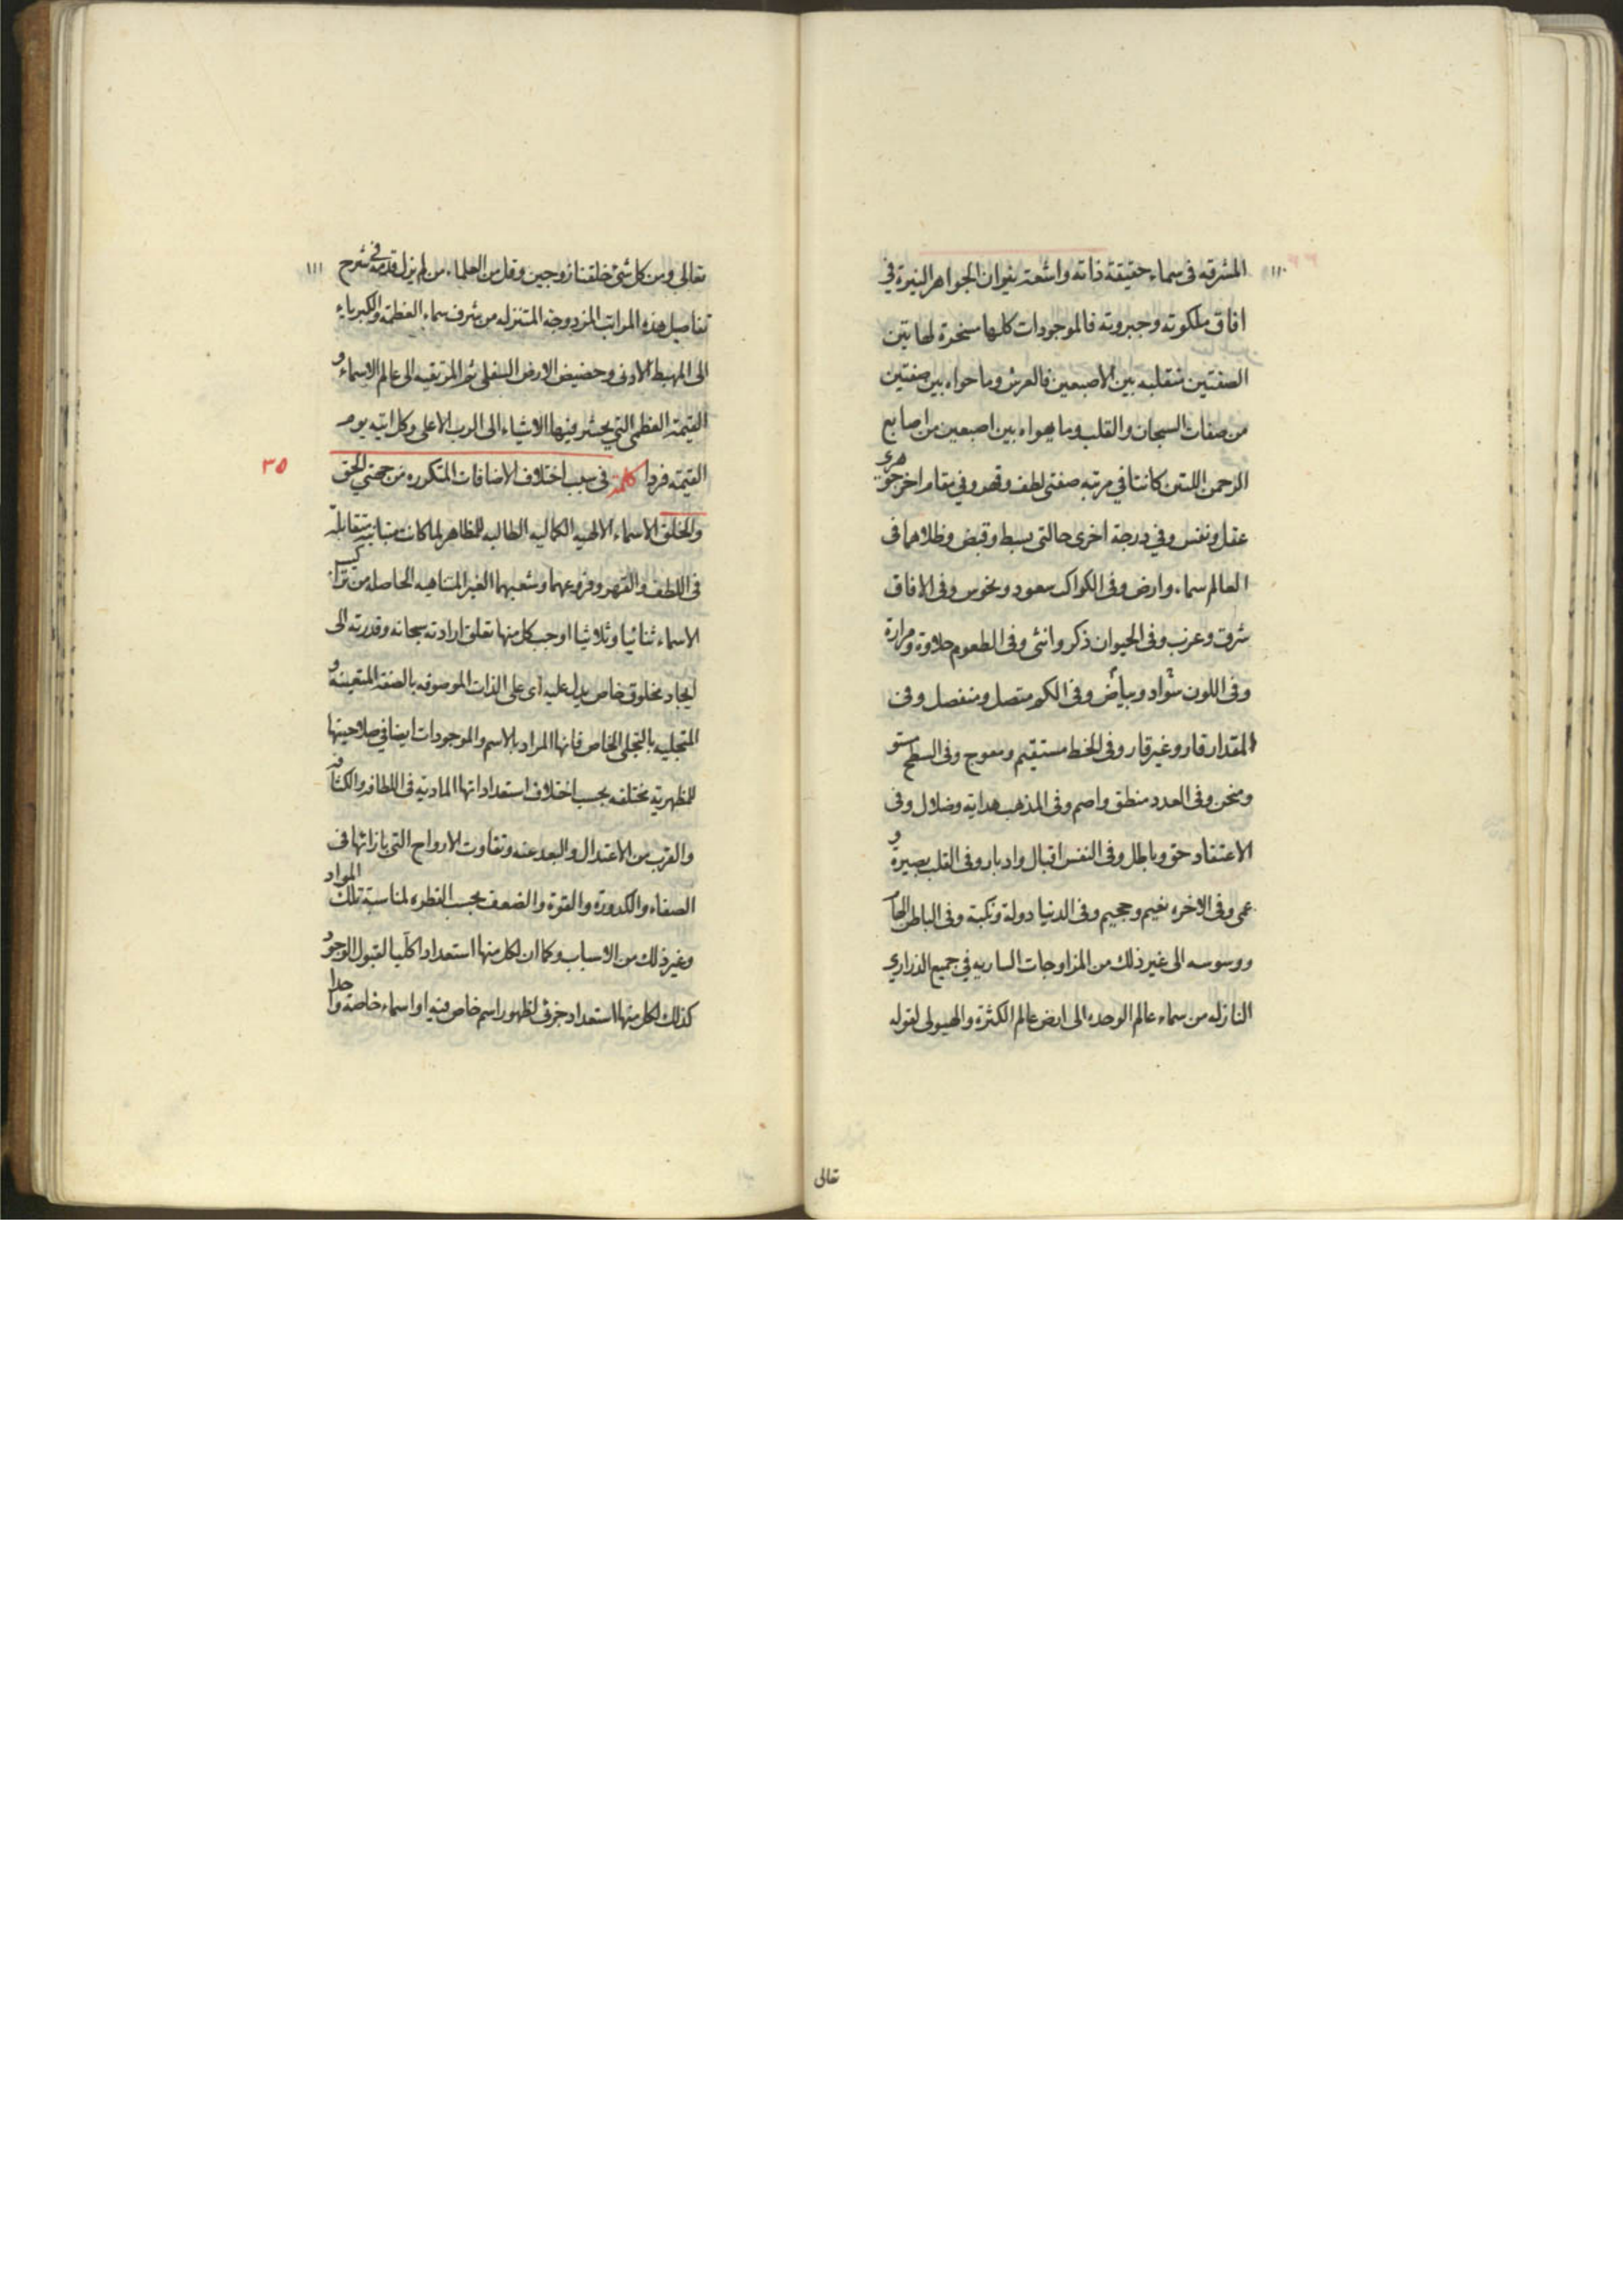 ١١٠
المشرقه فى سماء حقيقة ذاته واشعة نيران الجواهر النيرة في
افاق ملكوته وجبروته فالموجودات كلها مسخرة لهاتين
الصفتين متقلبه بين الاصبعين فالعرش وما حواه بين صفتين
من صفات السبحان والقلب وما يهواه بين اصبعين من اصابع
الرحمن اللتين كانتا في مرتبه صفتى لطف وقهر وفي مقام اخر جوهرى
عقل ونفس وفي درجة اخرى حالتى بسط وقبض وظلاهما فى
العالم سماء وارض وفى الكواكب سعود ونحوس وفى الافاق
شرق وغرب وفى الحيوان ذكر وانثى وفى الطعوم حلاوة ومرارة
وفى اللون سواد وبياض وفى الكم متصل ومنفصل وفى
المقدار قار وغير قار وفى الخط مستقيم ومعوج وفى السطح مستو
ومنحن وفى العدد منطق واصم وفى المذهب هداية وضلال وفى
الاعتقاد حق وباطل وفى النفس اقبال وادبار وفى القلب بصيرة و
عمى وفى الاخره نعيم وجحيم وفى الدنيا دولة ونكبة وفى الباطن الهام
ووسوسه الى غير ذلك من المزاوجات الساريه في جميع الذرارى
النازله من سماء عالم الوحده الى ارض عالم الكثرة والهيولى لقوله
تعالى
١١١
تعالى ومن كل شئ خلقنا زوجين وقل من العلماء من لم يزل قدمه في شرح
تفاصيل هذه المراتب المزدوجة المتنزله من شرف سماء العظمة والكبرياء
الى المهبط الادنى وحضيض الارض السفلى ثم المرتقيه الى عالم الاسماء و
القيمة العظمى التي يحشر فيها الاشياء الى الرب الاعلى وكل اتيه يوم
القيمة فردا كلمة فى سبب اختلاف الاضافات المتكرره من جهتي الحق
٣٥
والخلق الاسماء الالهيه الكماليه الطالبه للمظاهر لما كانت متباينة متقابلة
فى اللطف والقهر وفروعهما وشعبهما الغير المتناهيه الحاصله من تراكيب
الاسماء ثنائيا وثلاثيا اوجب كل منها تعلق ارادته سبحانه وقدرته الى
ايجاد مخلوق خاص يدل عليه اى على الذات الموصوفه بالصفة المتعينة و
المتجليه بالتجلى الخاص فانها المراد بالاسم والموجودات ايضا في صلاحيتها
للمظهرية مختلفه بحسب اختلاف استعداداتها المادية فى اللطافه والكثافه
والقرب من الاعتدال والبعد عنه وتفاوت الارواح التى بازائها فى
الصفاء والكدورة والقوة والضعف بحسب الفطره لمناسبة تلك المواد
وغير ذلك من الاسباب وكما ان لكل منها استعدادا كليا لقبول الوجود
كذلك لكل منها استعداد جزئى لظهور اسم خاص فيه او اسماء خاصة واحدا